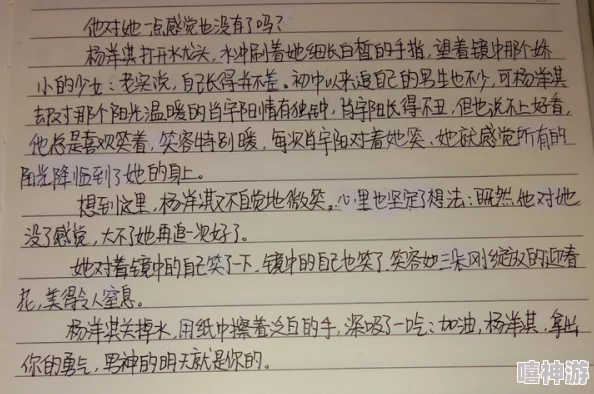 他对她一点感觉也没有了吗?
杨洋淇打开水龙头,水冲刷着她细长白皙的手指,望着镜中那个娇
小的少女:老实说,自己长得并不差。初中以来追自己的男生也不少,可杨洋淇
去对那个阳光温暖的肖宇阳情有独钟,肖宇阳长得不丑,但也说不上好看,
他总是喜欢笑着,笑容特别暖,每次肖宇阳对着她笑、她就感觉所有的
阳光降临到了她的身上。
想到这里,杨洋淇又不自觉地微笑。心里也坚定了想法:既然他对她
没了感觉,大不了她再追一次好了。
她对着镜中的自己笑了一下,镜中的自己也笑了,笑容如三朵刚绽放的迎春
花,美得令人窒息。
杨洋淇关掉水,用纸巾擦着泛白的手,深吸了一口气:加油,杨洋淇,拿出
你的勇气,男神的明天就是你的。
嘻神游